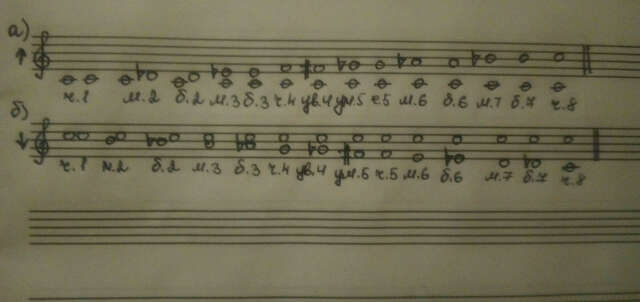 а)
ч.1 м.2 б.2 м.3 б.3 ч.4 ув.4 ум.5 ч.5 м.6 б.6 м.7 б.7 ч.8
б)
ч.1 м.2 б.2 м.3 б.3 ч.4 ув.4 ум.5 ч.5 м.6 б.6 м.7 б.7 ч.8